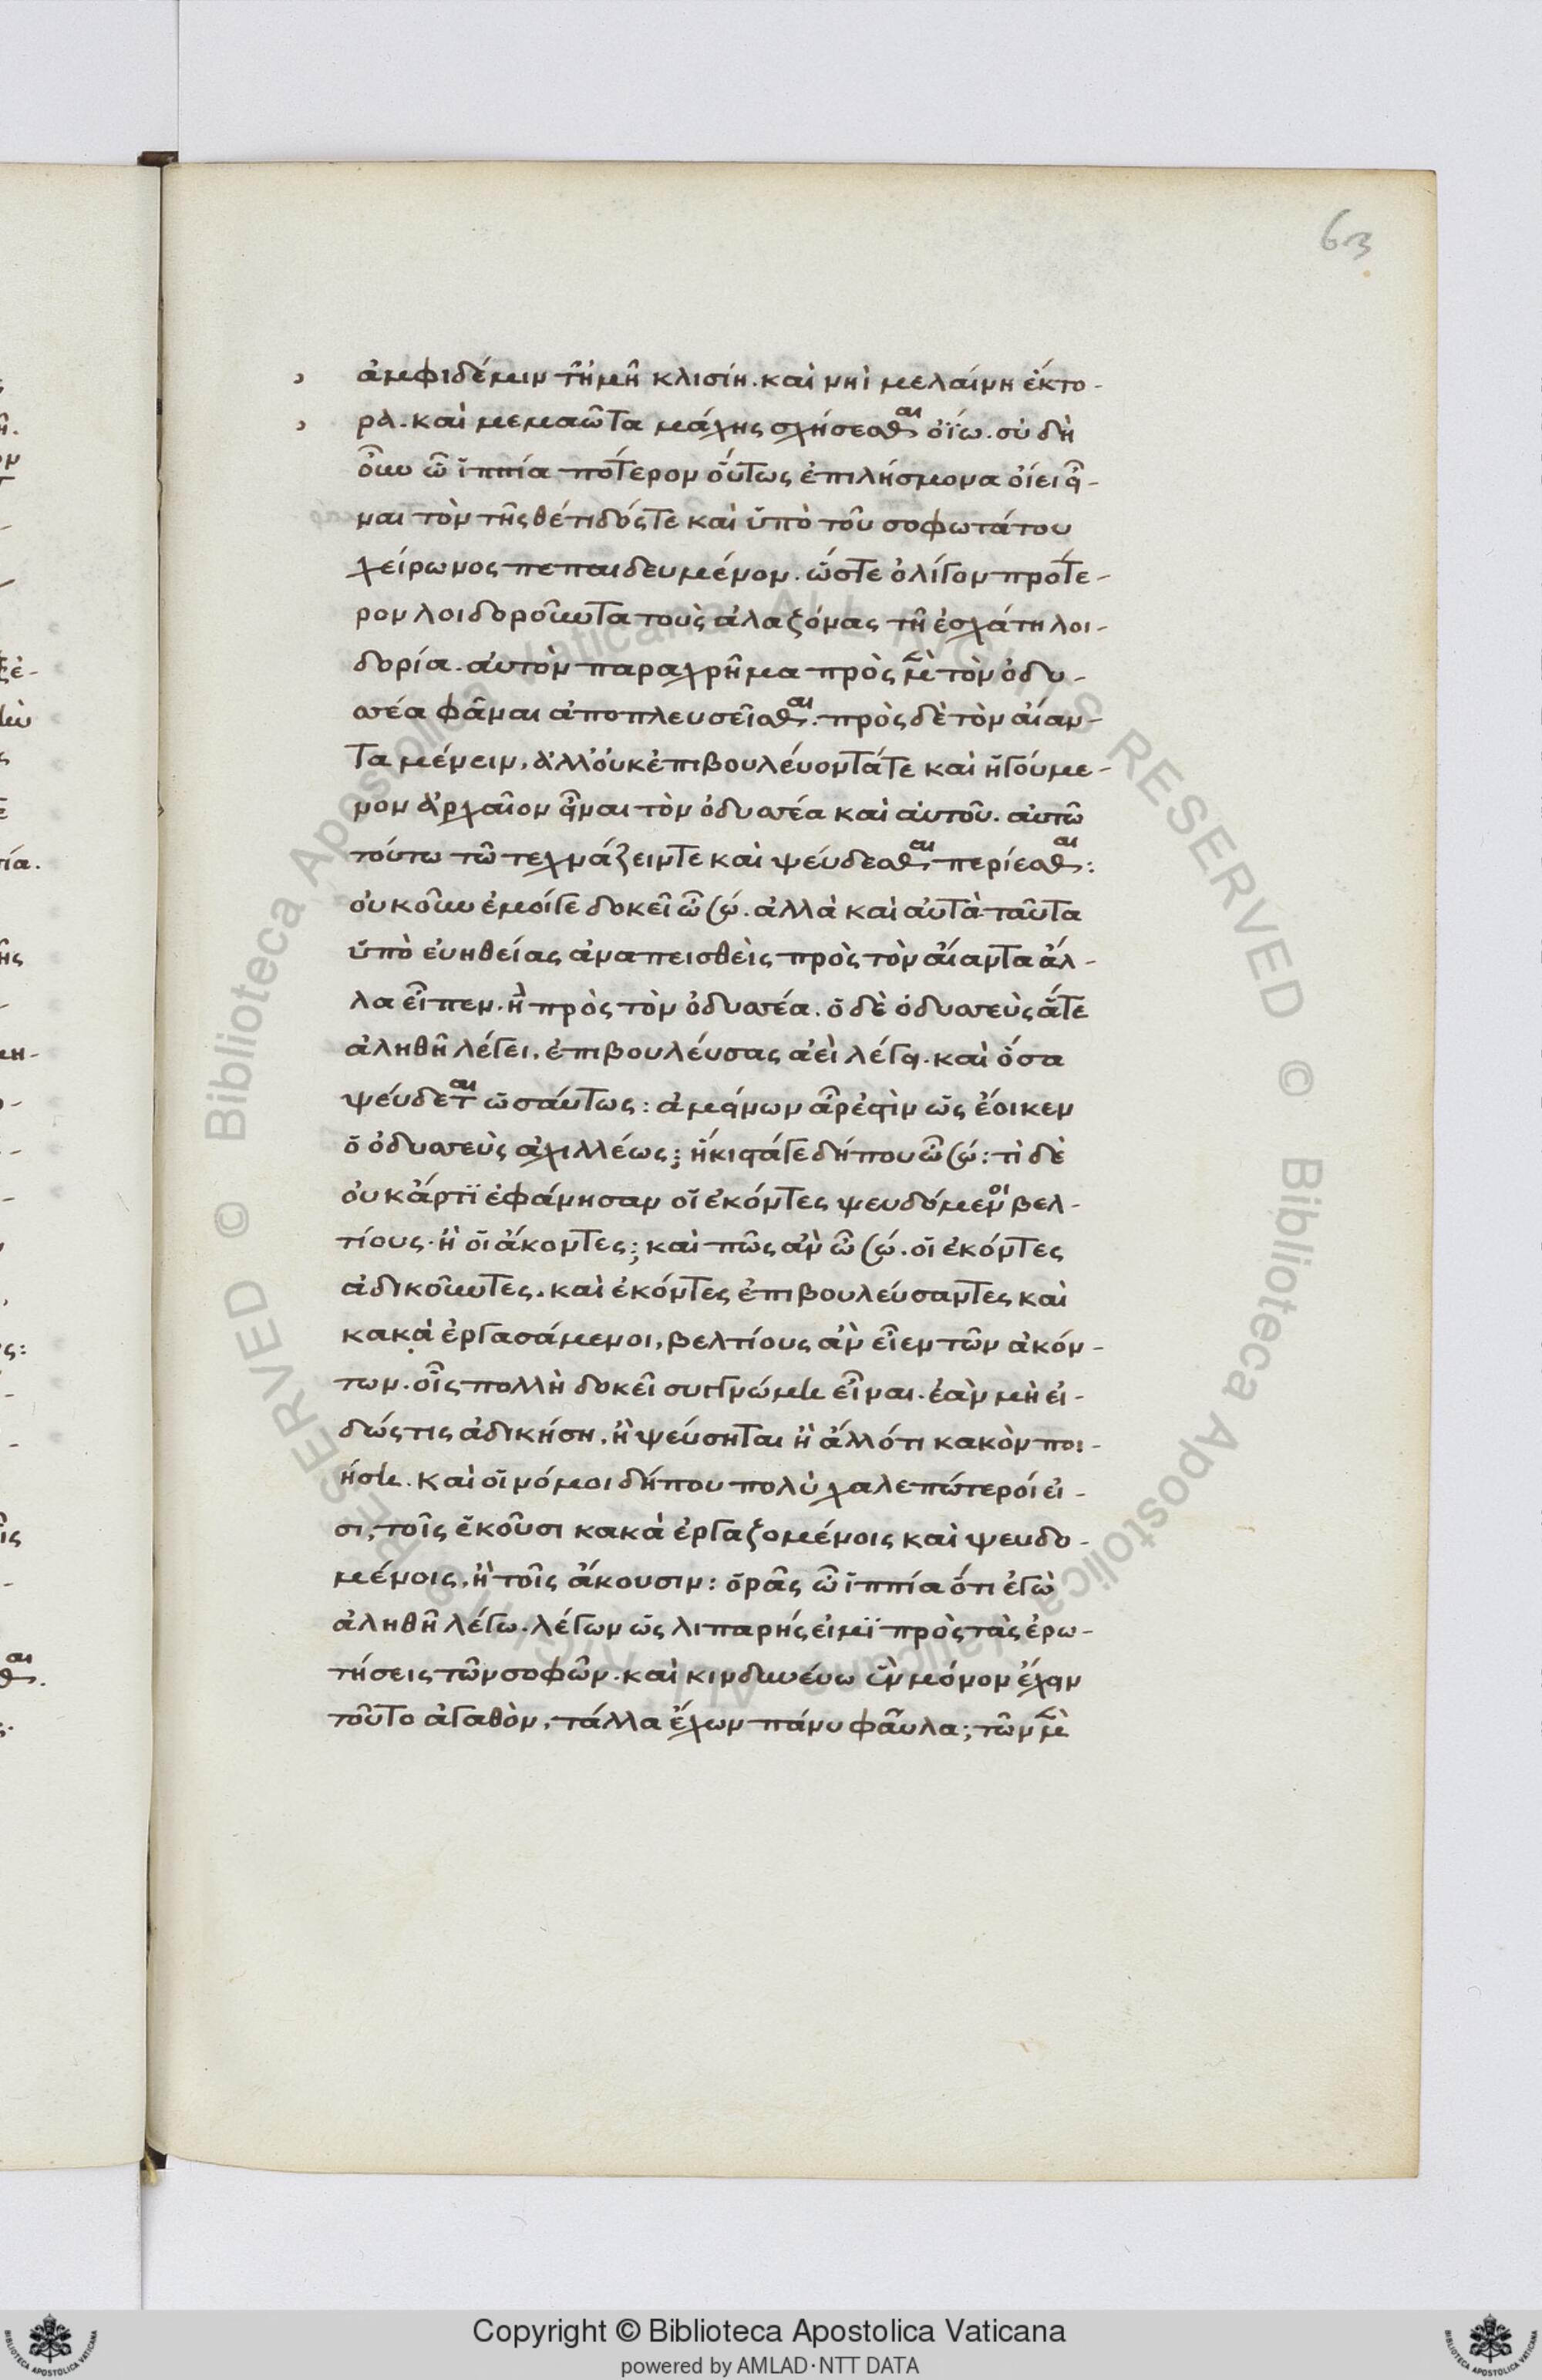 63
ἀμφιδέμειν τῆἐμῆ κλισίη. καὶ νηῒ μελαίνη ἕκτο-
ρα. καὶ μεμαῶτα μάχης σχήσεσθαι ὀΐω. σὺ δὴ
οὖν ὦ ἱππία πότερον οὕτως ἐπιλήσμονα οἴει εἶ-
ναι τὸν τῆς θέτιδός τε καὶ ὑπὸ τοῦ σοφωτάτου
χείρωνος πεπαιδευμένον. ὥστε ὀλίγον πρότε-
ρον λοιδοροῦντα τοὺς ἀλαζόνας τῆ ἐσχάτη λοι-
δορία. αὐτὸν παραχρῆμα πρὸς μὲν τὸν ὀδυ-
σσέα φᾶναι ἀποπλευσεῖσθαι. πρὸς δὲ τὸν αἴαν-
τα μένειν. ἀλλ' οὐκ ἐπιβουλεύοντά τε καὶ ἡγούμε-
νον ἀρχαῖον εἶναι τὸν ὀδυσσέα καὶ αὐτοῦ. αὐτῶ
τούτω τῶ τεχνάζειν τε καὶ ψεύδεσθαι περίεσθαι:
οὐκοῦν ἐμοίγε δοκεῖ ὦ σώ. ἀλλὰ καὶ αὐτὰ ταῦτα
ὑπὸ εὐηθείας ἀναπεισθεὶς πρὸς τὸν αἴαντα ἄλ-
λα εἶπεν. ἢ πρὸς τὸν ὀδυσσέα. ὁ δὲ ὀδυσσεὺς ἅτε
ἀληθῆ λέγει. ἐπιβουλεύσας ἀεὶ λέγει. καὶ ὅσα
ψεύδεται ὡσαύτως: ἀμείνων ἆρ' ἐστὶν ὡς ἔοικεν
ὁ ὀδυσσεὺς ἀχιλλέως; ἥκιστά γε δήπου ὦ σώ: τί δὲ
οὐκ ἄρτι ἐφάνησαν οἱ ἑκόντες ψευδόμενοι βελ-
τίους. ἢ οἱ ἄκοντες; καὶ πῶς ἂν ὦ σώ. οἱ ἑκόντες
ἀδικοῦντες. καὶ ἑκόντες ἐπιβουλεύσαντες καὶ
κακὰ ἐργασάμενοι, βελτίους ἂν εἶεν τῶν ἀκόν-
των. οἷς πολλὴ δοκεῖ συγγνώμη εἶναι. ἐὰν μὴ εἰ-
δώς τις ἀδικήση. ἢ ψεύσηται ἢ ἄλλό τι κακὸν ποι-
ήση. καὶ οἱ νόμοι δήπου πολὺ χαλεπώτεροί εἰ-
σι, τοῖς ἑκοῦσι κακὰ ἐργαζομένοις καὶ ψευδο-
μένοις. ἢ τοῖς ἄκουσιν: ὁρᾶς ὦ ἱππία ὅτι ἐγὼ
ἀληθῆ λέγω. λέγων ὡς λιπαρής εἰμϊ πρὸς τὰς ἐρω-
τήσεις τῶν σοφῶν. καὶ κινδυνεύω ἓν μόνον ἔχειν
τοῦτο ἀγαθὸν, τἄλλα ἔχων πάνυ φαῦλα; τῶν μὲν
Copyright © Biblioteca Apostolica Vaticana
powered by AMLAD·NTT DATA